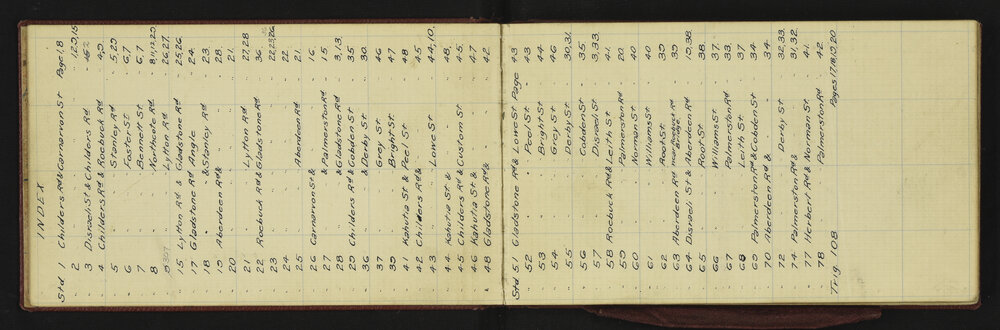 INDEX
Std 1 Childers Rd & Carnarvon St Page 1, 8
" 2 " " " 1,2,9,15
" 3 Disraeli St & Childers Rd
" 4 Childers Rd & Roebuck Rd 4,9
" 5 " Stanley Rd 5,29
" 6 " Foster St 6,7
" 7 " Bennett St 6,7
" 8 " Northcote Rd 8,11,12,29
" " Lytton Rd 26,27
" 15 Lytton Rd & Gladstone Rd 25,26
" 17 Gladstone Rd Angle 24
" 18 " & Stanley Rd 23
" 19 Aberdeen Rd & " 28
" 20 " " 21
" 21 " Lytton Rd 27,28
" 22 Roebuck Rd & Gladstone Rd 36
" 23 " " 22,23,26
" 24 " " 22
" 25 " Aberdeen Rd 21
" 26 Carnarvon St & " 16
" 27 " & Palmerston Rd 15
" 28 " & Gladstone Rd 3,13
" 29 Childers Rd & Cobden St 35
" 36 " & Derby St 30
" 37 " Grey St 46
" 39 " Bright St 47
" 41 Kahutia St & Peel St 48
" 42 Childers Rd & " 45
" 43 " Lowe St 44,10
" 44 Kahutia St & " 48
" 45 Childers Rd & Custom St 45
" 46 Kahutia St & " 47
" 48 Gladstone Rd & " 42
Std 51 Gladstone Rd & Lowe St Page 43
" 52 " Peel St 43
" 53 " Bright St 44
" 54 " Grey St 46
" 55 " Derby St 30,31
" 56 " Cobden St 35
" 57 " Disraeli St 3,33
" 58 Roebuck Rd & Leith St 41
" 59 " Palmerston Rd 20
" 60 " Norman St 40
" 61 " Williams St 40
" 62 " Root St 39
" 63 Aberdeen Rd 39
" 64 Disraeli St & Aberdeen Rd 19,38
" 65 " Root St 38
" 66 " Williams St 37
" 67 " Palmerston Rd 33
" 68 " Leith St 37
" 69 Palmerston Rd & Cobden St 34
" 70 Aberdeen Rd & " 34
" 72 " Derby St 32,33
" 74 Palmerston Rd & " 31,32
" 77 Herbert Rd & Norman St 41
" 78 " Palmerston Rd 42
Trig. 108 Pages 17,18,19,20